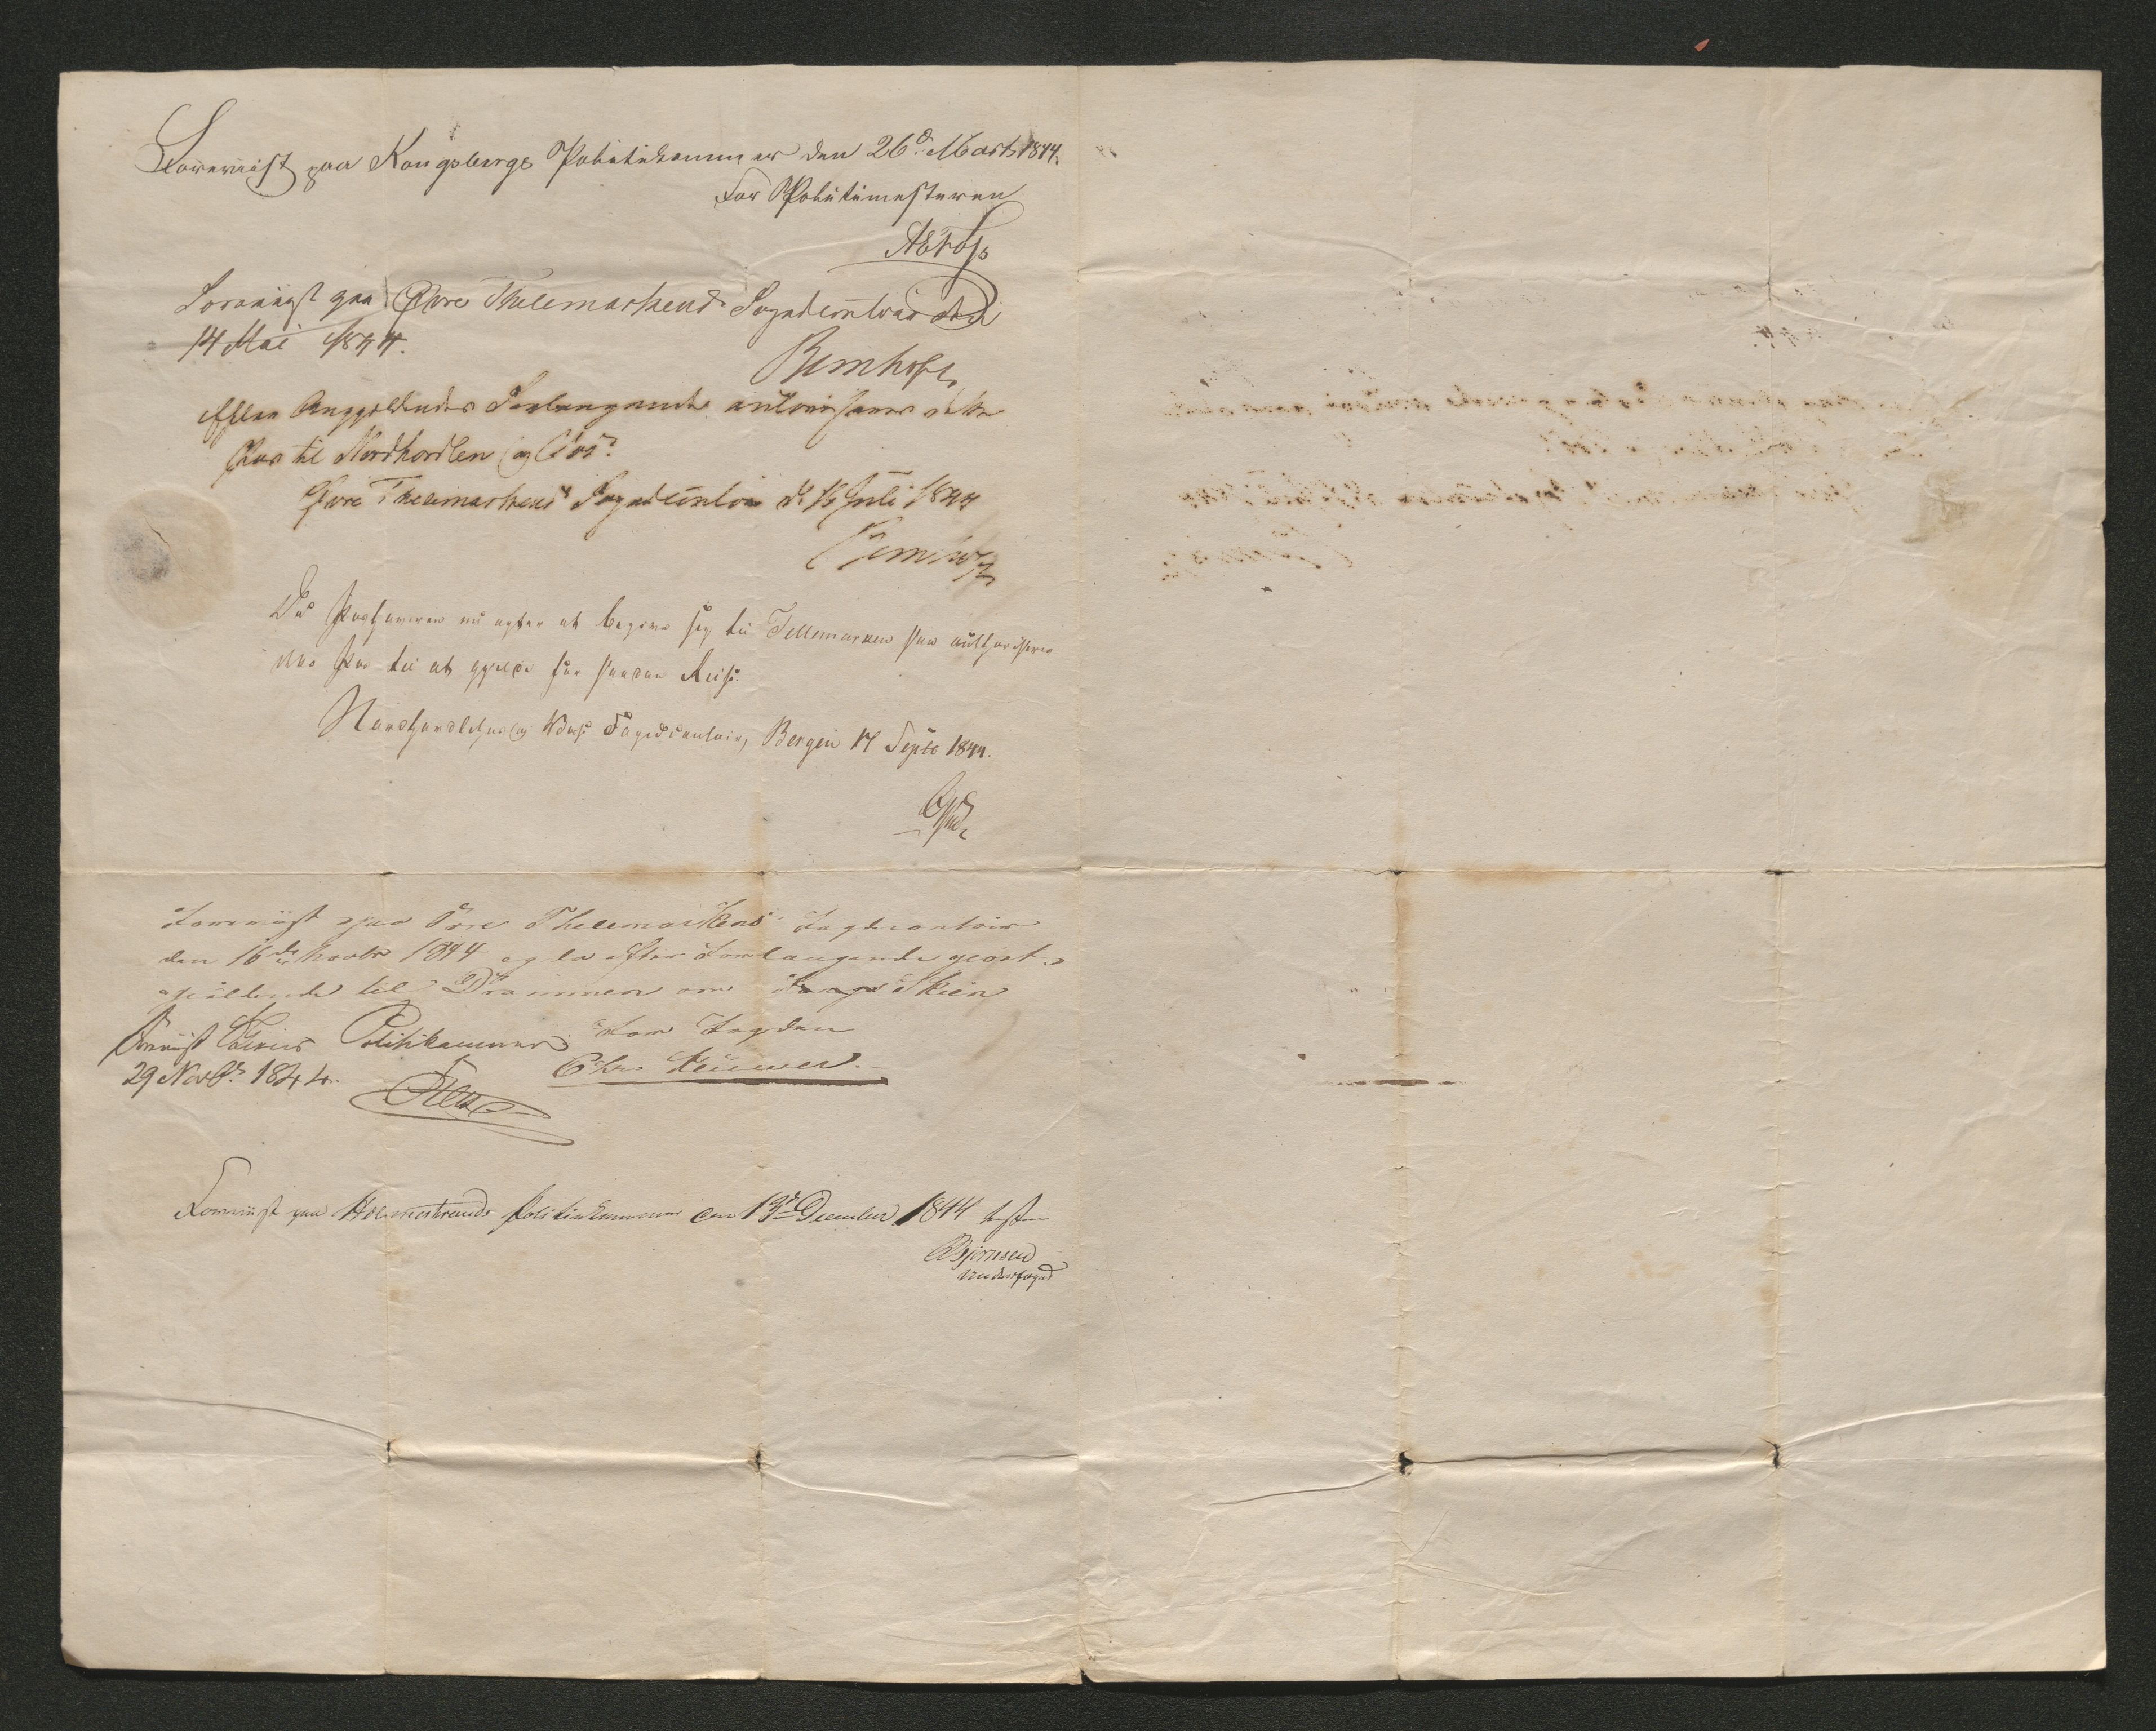 Foreviist paa Kongsbergs Politiekammer den 26d. Marts 1844.
For Politiemesteren
Foreviist paa Øvre Thelemarkens Fogdecontoir den
14 Mai 1844.
Efter Angjeldendes Forlangende autoriseres dette
Pas til Nordhordlen og Vos.
Øvre Thelemarkens Fogdecontoir d. 16 Juli 1844
Da Passhaveren nu agter at begive sig til Tellemarken saa authoriseres
Pas til at gjelde for saadan Reise.
Nordhordlehns og Vos's Fogedcontoir, Bergen 17 Septbr 1844.
Foreviist paa Øvre Thelemarkens Fogdecontoir
den 16de Novbr 1844 og efter Forlangende gjort
gjældende til Drammen om Skien
For Fogden
Foreviist Politikammer
29 Novbr. 1844.
Foreviist paa Holmestrands Politiekammer den 13de December 1844
Bjørnsen
Underfoged